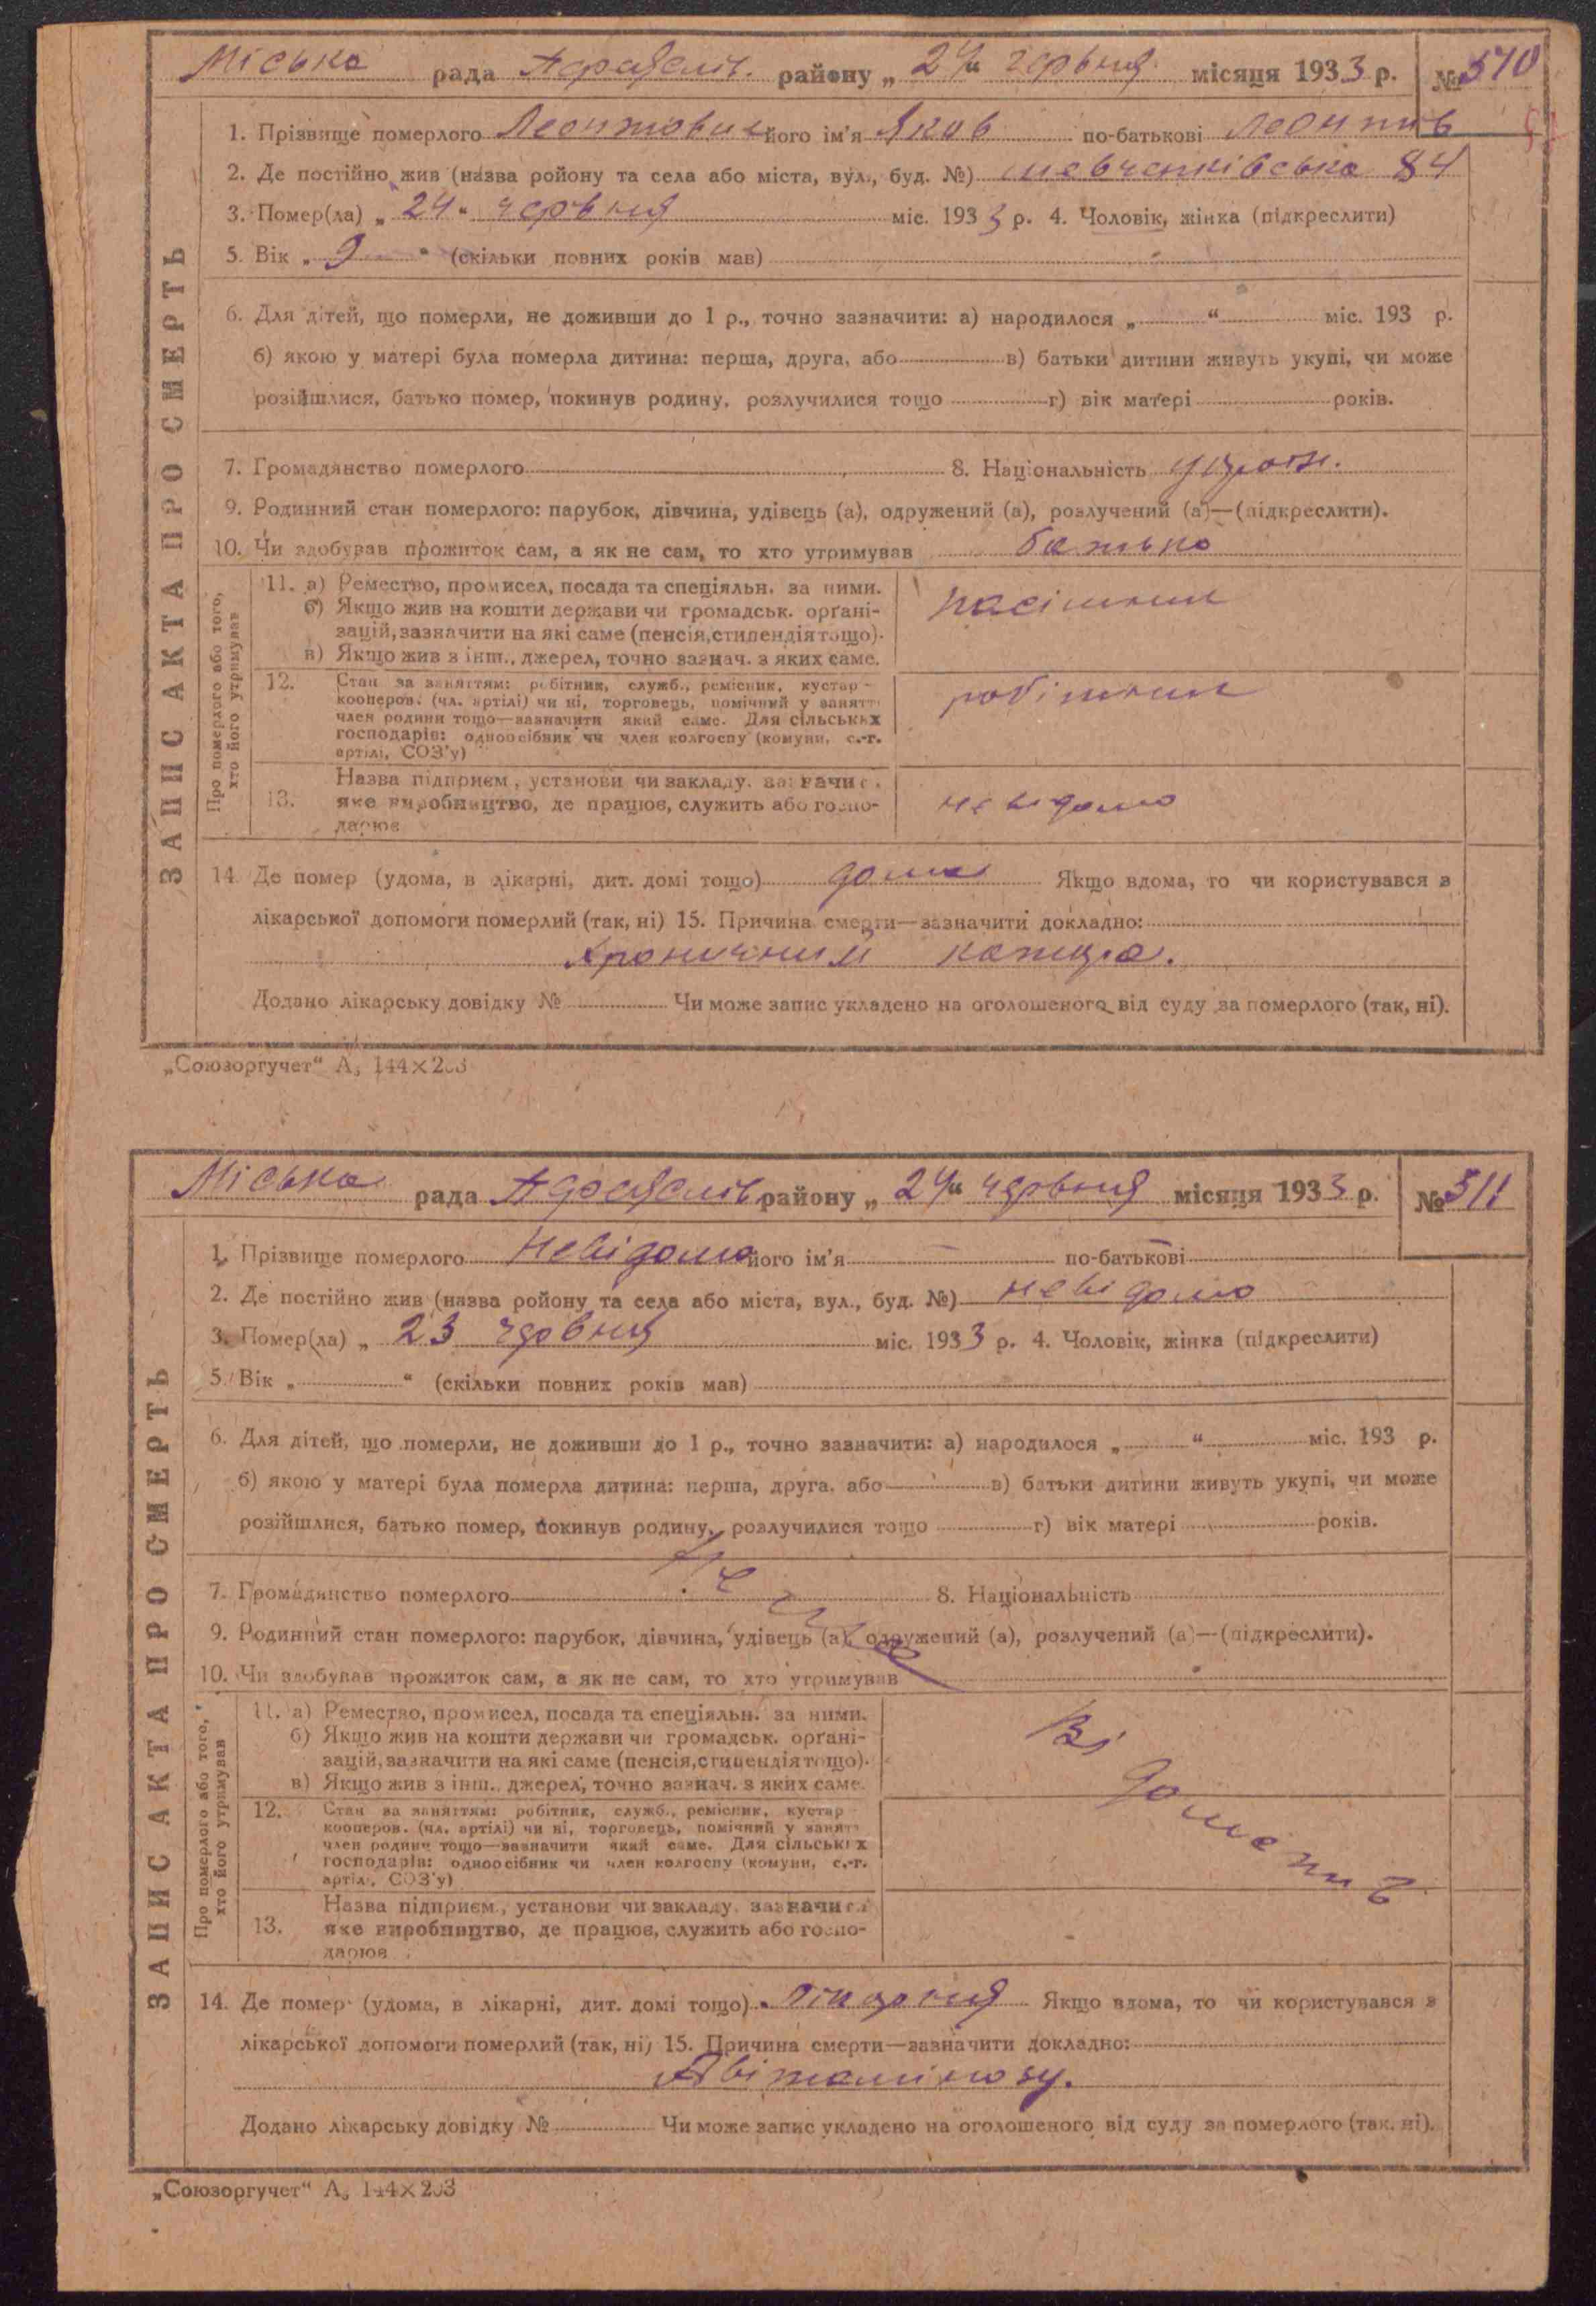 Міська рада района „24“ червня місяця 1933 р. № 510
1. Прізвище померлого Леонтович його ім'я Яков по-батькові Леонтів
2. Де постійно жив (назва ройону та села або міста, вул., буд. №) Шевченківська 84
3. Помер(ла) „24“ червня міс. 1933 р. 4. Чоловік, жінка (підкреслити)
5. Вік „9“ (скільки повних років мав)
6. Для дітей, що померли, не доживши до 1 р., точно зазначити: а) народилося „ “ міс. 193 р.
б) якою у матері була померла дитина: перша, друга, або в) батьки дитини живуть укупі, чи може
розійшлися, батько помер, покинув родину, розлучилися тощо г) вік матері років.
7. Громадянство померлого 8. Національність україн.
9. Родинний стан померлого: парубок, дівчина, удівець (а), одружений (а), розлучений (а)—(підкреслити).
10. Чи здобував прожиток сам, а як не сам, то хто утримував батько
ЗАПИС АКТА ПРО СМЕРТЬ
Про померлого або того,
хто його утримував
11. а) Ремество, промисел, посада та спеціяльн. за ними.
б) Якщо жив на кошти держави чи громадськ. орґані-
зацій, зазначити на які саме (пенсія, стипендія тощо).
в) Якщо жив з інш., джерел, точно зазнач. з яких саме.
12. Стан за заняттям: робітник, служб., ремісник, кустар-
кооперов. (чл. артілі) чи ні, торговець, помічний у занятті
член родини тощо—зазначити який саме. Для сільських
господарів: одноосібник чи член колгоспу (комуни, с.-г.
артілі, СОЗ'у)
робітник
13. Назва підприєм., установи чи закладу. зазначити
яке виробництво, де працює, служить або госпо-
дарює
невідомо
14. Де помер (удома, в лікарні, дит. домі тощо) дома Якщо вдома, то чи користувався з
лікарської допомоги померлий (так, ні) 15. Причина смерти—зазначити докладно:
Хроничний катар.
Додано лікарську довідку № Чи може запис укладено на оголошеного від суду за померлого (так, ні).
„Союзоргучет“ А5 144×203
Міська рада району „24“ червня місяця 1933 р. № 511
1. Прізвище померлого Невідомо його ім'я — по-батькові —
2. Де постійно жив (назва ройону та села або міста, вул., буд. №) невідомо
3. Помер(ла) „23 червня міс. 1933 р. 4. Чоловік, жінка (підкреслити)
5. Вік „ “ (скільки повних років мав)
6. Для дітей, що померли, не доживши до 1 р., точно зазначити: а) народилося „ “ міс. 193 р.
б) якою у матері була померла дитина: перша, друга, або в) батьки дитини живуть укупі, чи може
розійшлися, батько помер, покинув родину, розлучилися тощо г) вік матері років.
7. Громадянство померлого 8. Національність
9. Родинний стан померлого: парубок, дівчина, удівець (а), одружений (а), розлучений (а)—(підкреслити).
10. Чи здобував прожиток сам, а як не сам, то хто утримував
ЗАПИС АКТА ПРО СМЕРТЬ
Про померлого або того,
хто його утримував
11. а) Ремество, промисел, посада та спеціяльн. за ними.
б) Якщо жив на кошти держави чи громадськ. орґані-
зацій, зазначити на які саме (пенсія, стипендія тощо).
в) Якщо жив з інш., джерел, точно зазнач. з яких саме.
12. Стан за заняттям: робітник, служб., ремісник, кустар
кооперов. (чл. артілі) чи ні, торговець, помічний у занятті
член родини тощо—зазначити який саме. Для сільських
господарів: одноосібник чи член колгоспу (комуни, с.-г.
артілі, СОЗ'у)
13. Назва підприєм., установи чи закладу. зазначити
яке виробництво, де працює, служить або госпо-
дарює
Відоментів
14. Де помер (удома, в лікарні, дит. домі тощо) лікарня Якщо вдома, то чи користувався з
лікарської допомоги померлий (так, ні) 15. Причина смерти—зазначити докладно:
Авітамінозу.
Додано лікарську довідку № Чи може запис укладено на оголошеного від суду за померлого (так, ні).
„Союзоргучет“ А5 144×203